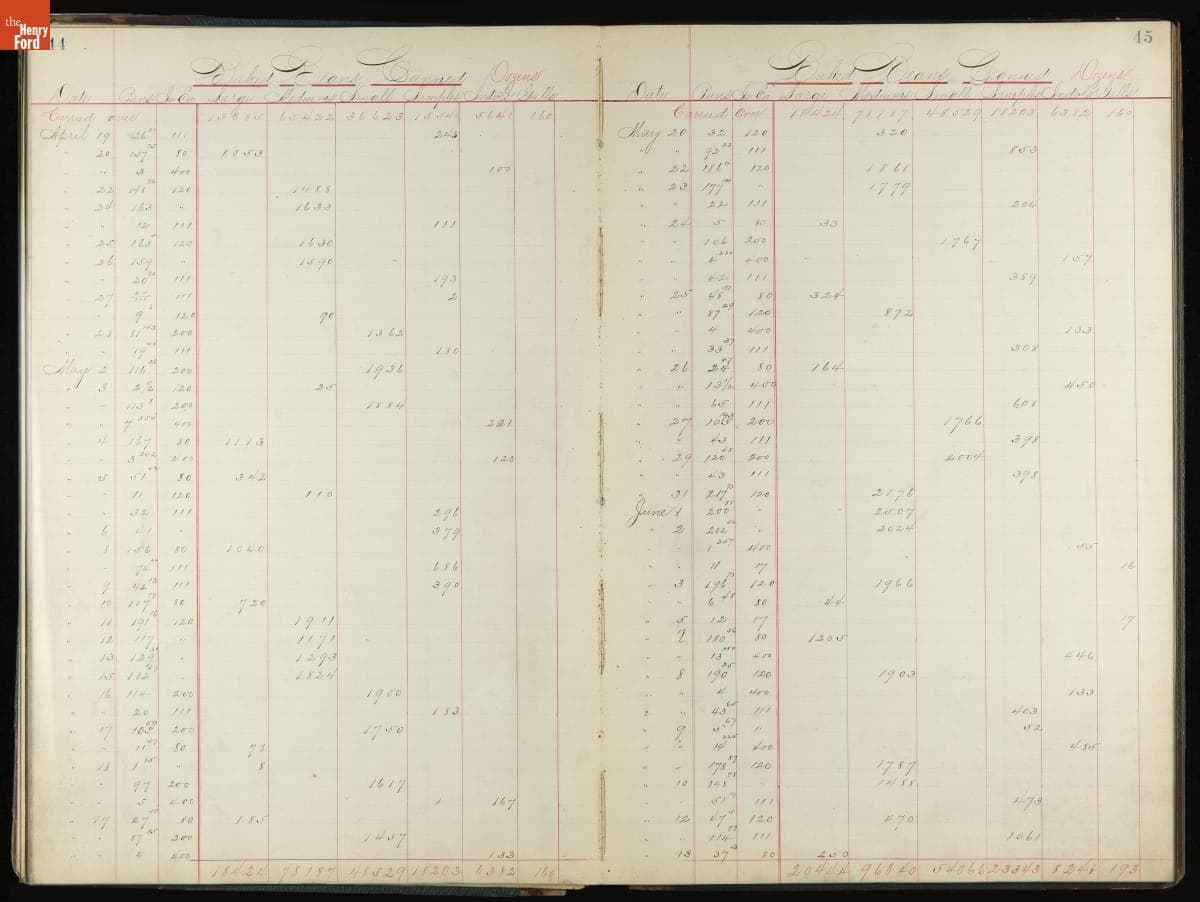 the Henry Ford
44
Baked Beans Canned Dozens
Date Pans In Ea Large Mediums Small Samples Individ's Galls
Carried over 13885 65422 36623 15540 5641 160
April 19 26 111 243
" 20 157 80 1053
" " 3 400 100
" 22 148 120 1488
" 24 163 " 1633
" " 12 111 111
" 25 163 120 1630
" 26 159 " 1590
" " 20 111 193
" 27 111 2
" " 9 120 90
" 28 81 200 1362
" " 19 111 180
May 2 116 200 1936
" 3 2½ 120 25
" " 113 200 1884
" " 7 400 291
" 4 167 80 1113
" " 3 400 120
" 5 51 80 342
" " 11 120 110
" " 32 111 296
" 6 41 " 379
" 8 156 80 1040
" " 74 111 686
" 9 42 111 390
" 10 107 80 720
" 11 191 120 1911
" 12 117 " 1171
" 13 129 " 1293
" 15 182 " 1824
" 16 114 200 1900
" " 20 111 183
" 17 105 200 1750
" " 11 80 78
" 18 1 " 8
" " 97 200 1617
" " 5 400 167
" 19 27 80 185
" " 87 200 1457
" " 4 400 133
18424 78187 48529 18203 6382 160
45
Baked Beans Canned Dozens
Date Pans In Ea Large Mediums Small Samples Individ's Galls
Carried Over 18424 78187 48529 18203 6382 160
May 20 32 120 320
" " 92 111 853
" 22 186 120 1861
" 23 177 " 1779
" " 22 111 204
" 24 5 80 33
" " 106 200 1767
" " 4 400 157
" " 42 111 389
" 25 48 80 324
" " 87 120 872
" " 4 400 133
" " 33 111 308
" 26 24 80 164
" " 13½ 400 450
" " 65 111 601
" 27 105 200 1766
" " 43 111 398
" 29 120 200 2004
" " 43 111 398
" 31 217 120 2176
June 1 200 " 2007
" 2 202 " 2024
" " 1 400 55
" " 11 17 16
" 3 196 120 1966
" " 6 80 44
" 5 12 17 17
" 7 180 80 1205
" " 13 400 446
" 8 190 120 1903
" " 4 400 133
" " 43 111 403
" 9 5 " 52
" " 14 400 485
" " 178 120 1787
" 10 148 " 1488
" " 51 111 473
" 12 47 120 470
" " 114 111 1061
" 13 37 80 250
20444 96840 54066 23343 8241 193